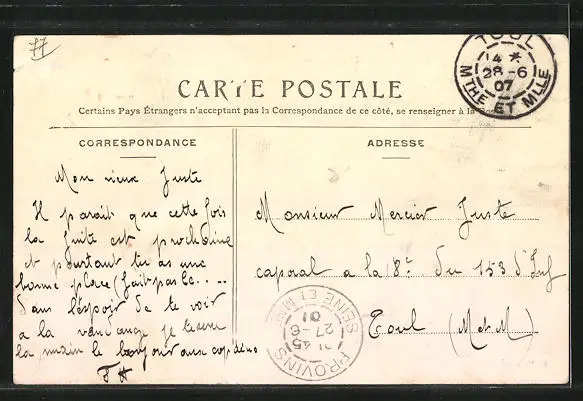 77
TOUL
14 *
28-6
07
MTHE ET MLLE
CARTE POSTALE
Certains Pays Étrangers n'acceptant pas la Correspondance de ce côté, se renseigner à la
CORRESPONDANCE
ADRESSE
Mon vieux Juste
Il parait que cette fois
la fuite est prochaine
et pourtant tu as une
bonne place (fait pas le....
Dans l'espoir de te voir
a la vendange je te serre
la main le bonjour aux copains
F H
Monsieur Mercier Juste
caporal a la 18e du 153 d'Inf
Toul (M et M)
PROVINS
SEINE ET MNE
21 45
27-6
07